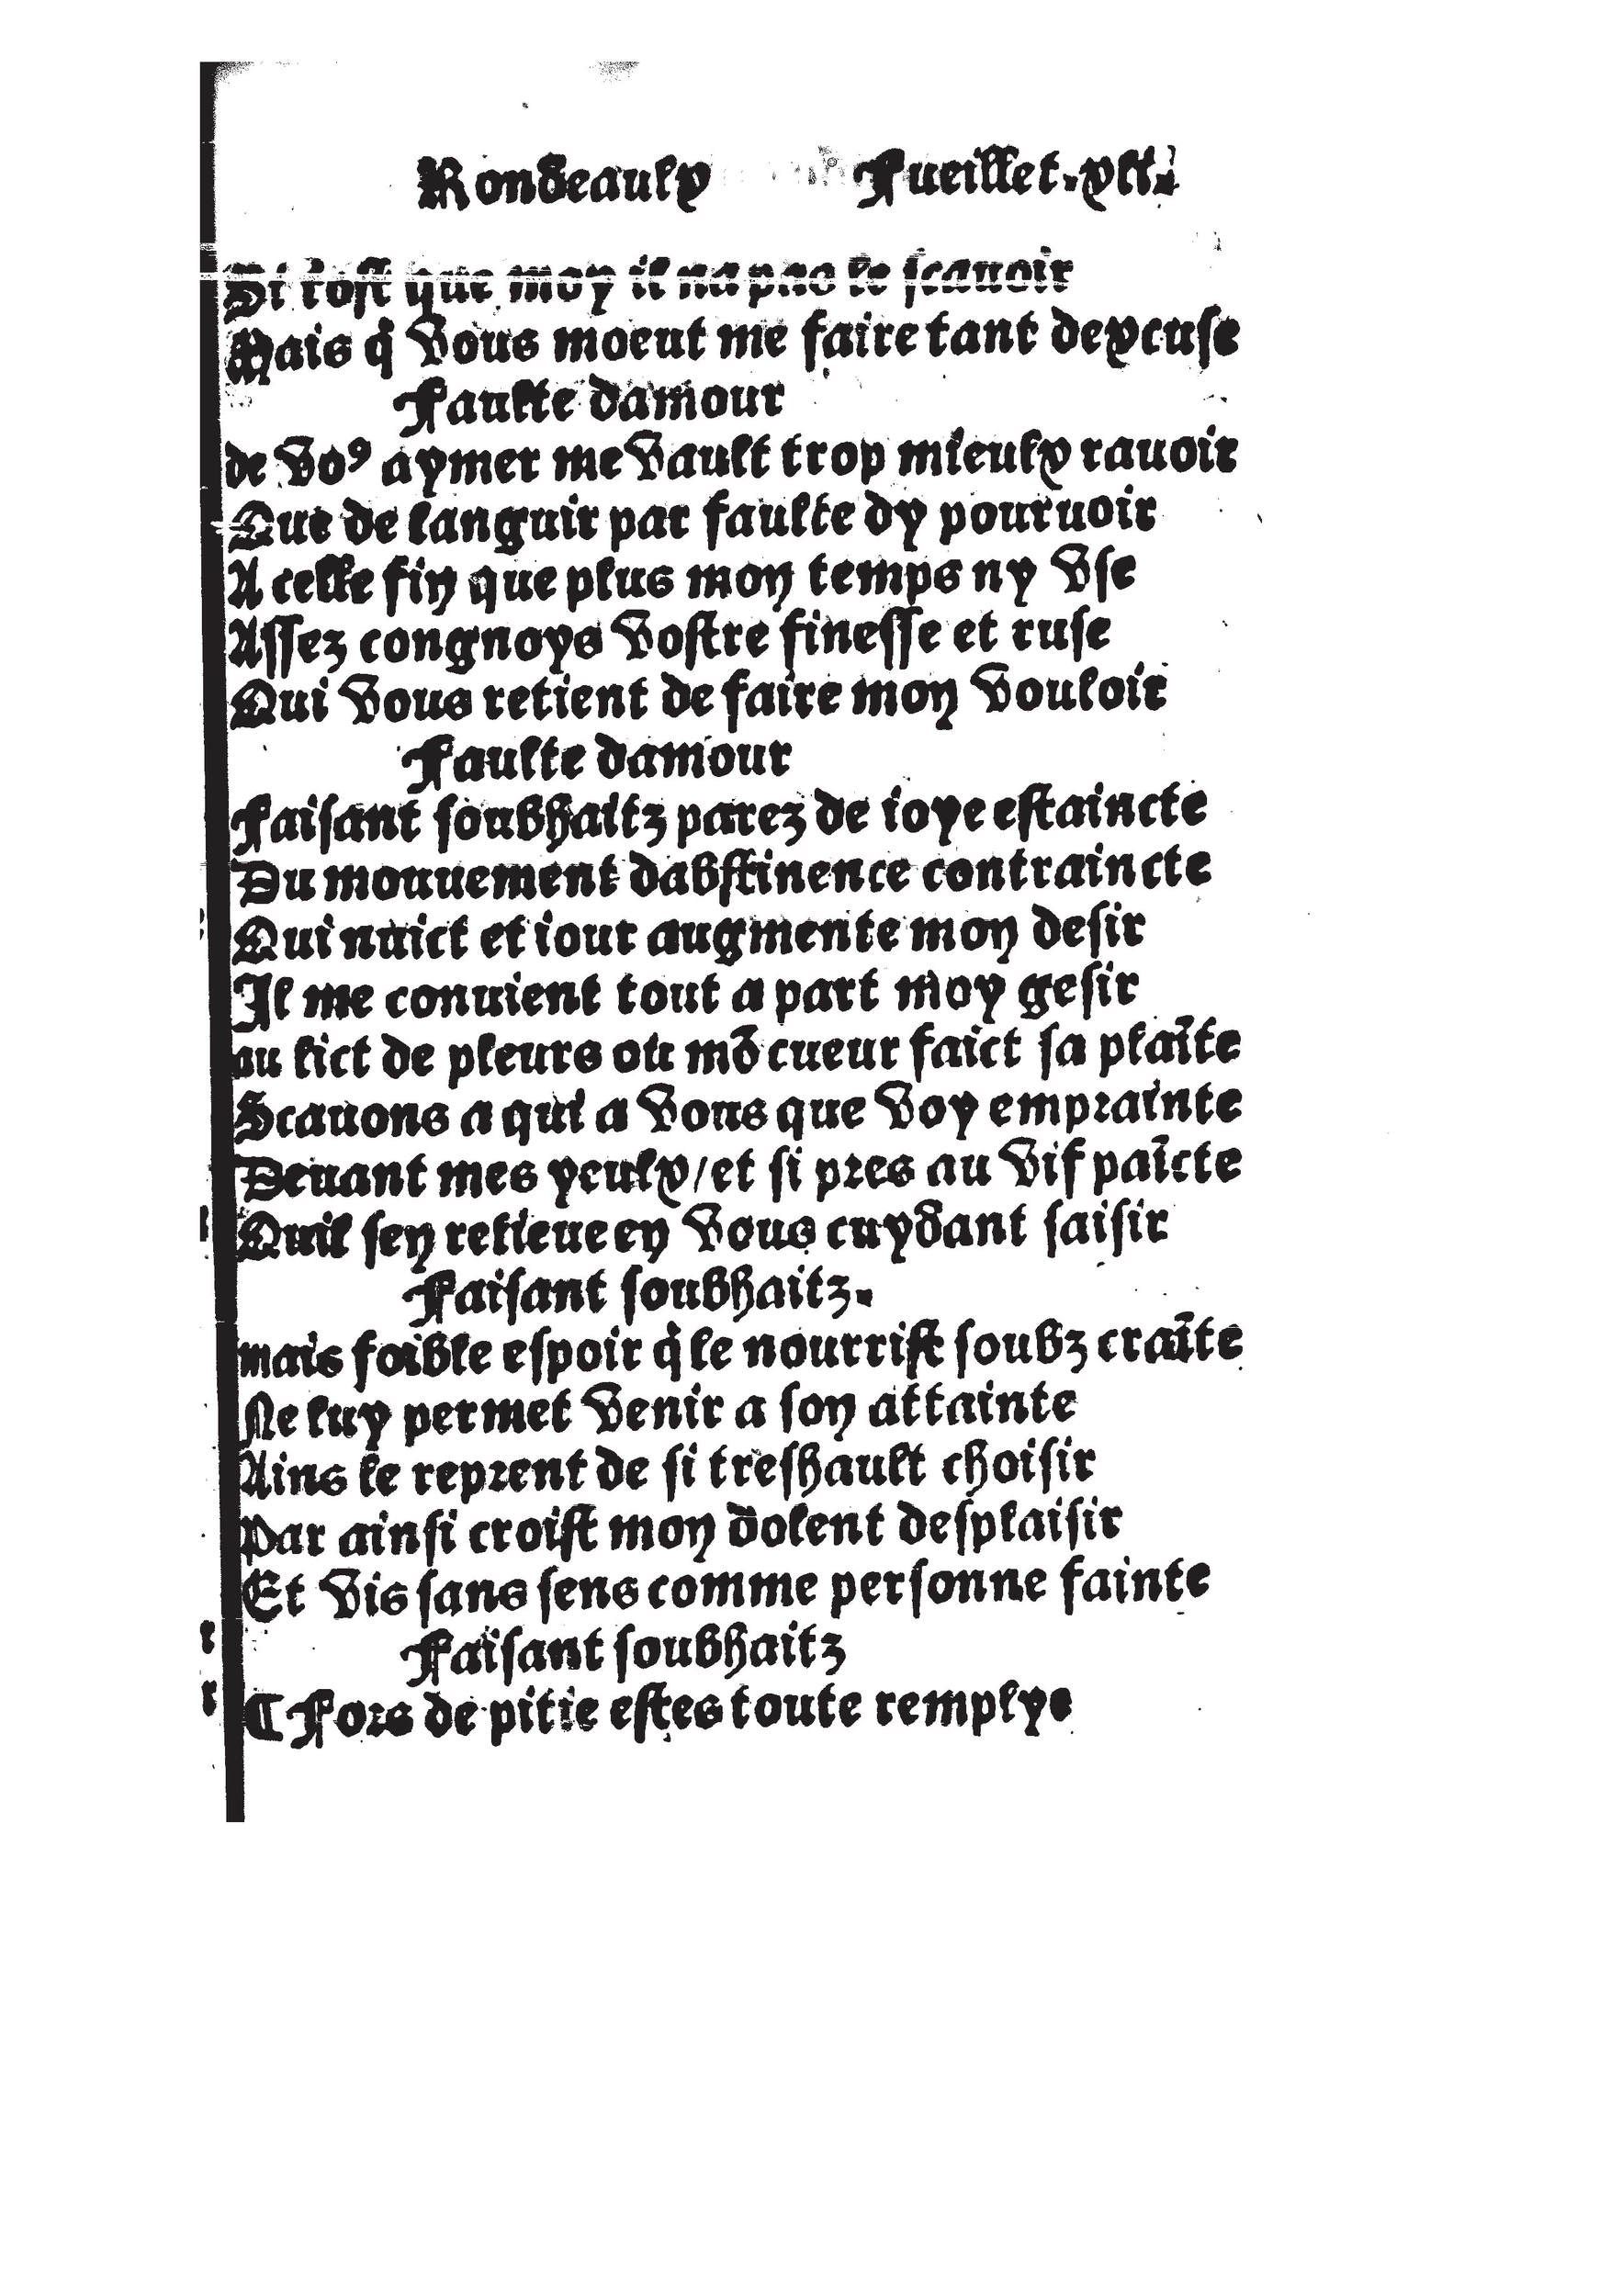 Rondeaulx Fueillet.xli.
Si tost que moy il na pas le scauoir
Mais q̇ vous moeut me faire tant dexcuse
Faulte damour
de voꝰ aymer me vault trop mieulx rauoir
Que de languir par faulte dy pouruoir
A celle fin que plus mon temps ny vse
Assez congnoys vostre finesse et ruse
Qui vous retient de faire mon vouloir
Faulte damour
Faisant soubhaitz parez de ioye estaincte
Du mouuement dabstinence contraincte
Qui nuict et iour augmente mon desir
Il me conuient tout a part moy gesir
au lict de pleurs ou mō cueur faict sa plaīte
Scauons a qui a vous que voy emprainte
Deuant mes yeulx/et si pres au vif paīcte
Quil sen relieue en vous cuydant saisir
Faisant soubhaitz.
mais foible espoir q̇ le nourrist soubz craīte
Ne luy permet venir a son attainte
Ains le reprent de si treshault choisir
Par ainsi croist mon dolent desplaisir
Et vis sans sens comme personne fainte
Faisant soubhaitz
¶ Fors de pitie estes toute remplye